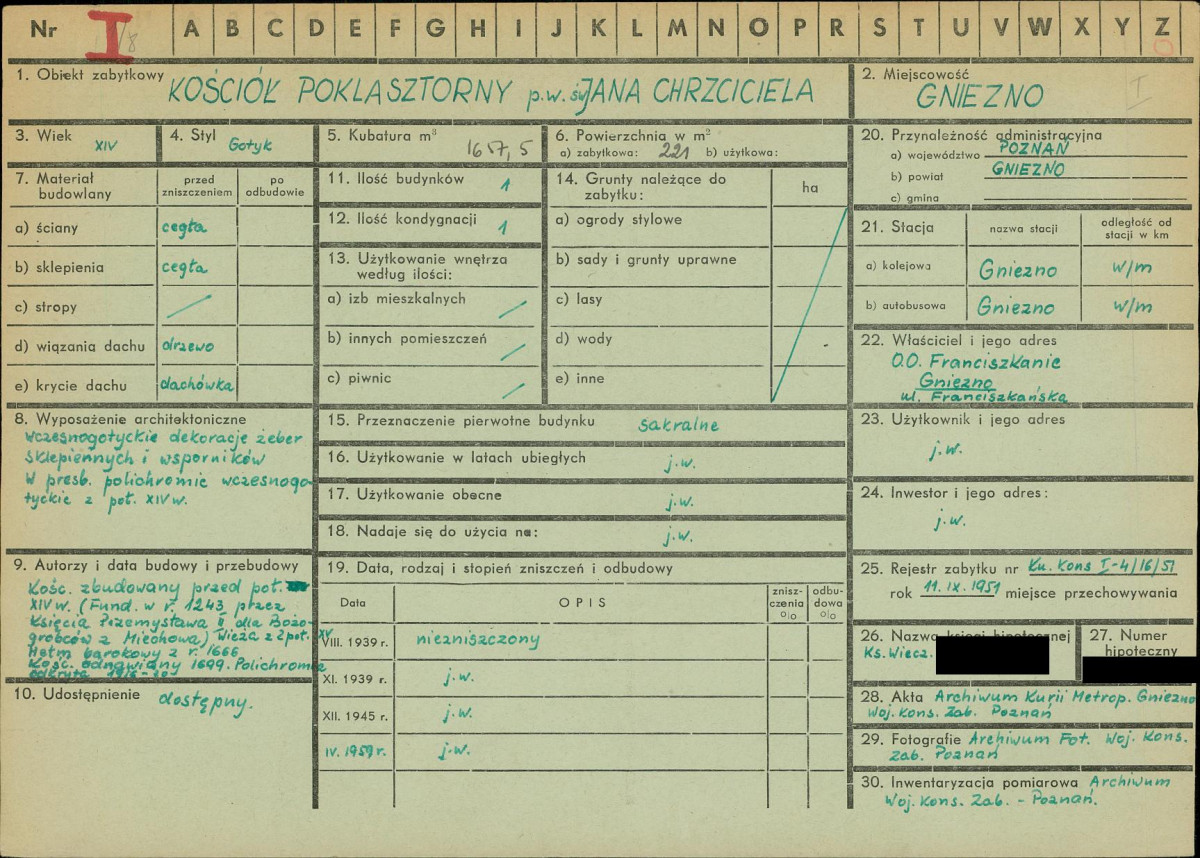 Nr I/8 A B C D E F G H I J K L M N O P R S T U V W X Y Z
1. Obiekt zabytkowy KOŚCIÓŁ POKLASZTORNY p.w. św JANA CHRZCICIELA
2. Miejscowość
GNIEZNO
I
3. Wiek XIV
4. Styl Gotyk
5. Kubatura m³ 1657,5
6. Powierzchnia w m²
a) zabytkowa: 221 b) użytkowa:
7. Materiał budowlany
przed zniszczeniem
po odbudowie
a) ściany cegła
b) sklepienia cegła
c) stropy
d) wiązania dachu drzewo
e) krycie dachu dachówka
8. Wyposażenie architektoniczne
wczesnogotyckie dekoracje żeber
sklepiennych i wsporników
W presb. polichromie wczesnogo-
tyckie z poł. XIV w.
9. Autorzy i data budowy i przebudowy
Kość. zbudowany przed poł.
XIV w. (Fund. w r. 1243 przez
Księcia Przemysława II dla Bożo-
grobców z Miechowa) Wieża z 2 poł. XV
Hełm barokowy z r. 1666
Kość. odnawiany 1699. Polichromia
odkryta 1916-20
10. Udostępnienie dostępny.
11. Ilość budynków 1
12. Ilość kondygnacji 1
13. Użytkowanie wnętrza
według ilości:
a) izb mieszkalnych
b) innych pomieszczeń
c) piwnic
14. Grunty należące do
zabytku:
ha
a) ogrody stylowe
b) sady i grunty uprawne
c) lasy
d) wody
e) inne
15. Przeznaczenie pierwotne budynku sakralne
16. Użytkowanie w latach ubiegłych j.w.
17. Użytkowanie obecne j.w.
18. Nadaje się do użycia na: j.w.
19. Data, rodzaj i stopień zniszczeń i odbudowy
Data
OPIS
znisz-
czenia
%
odbu-
dowa
%
VIII. 1939 r. niezniszczony
XI. 1939 r. j.w.
XII. 1945 r. j.w.
IV. 1959 r. j.w.
20. Przynależność administracyjna
a) województwo POZNAŃ
b) powiat GNIEZNO
c) gmina
21. Stacja
nazwa stacji
odległość od
stacji w km
a) kolejowa Gniezno w/m
b) autobusowa Gniezno w/m
22. Właściciel i jego adres
O.O. Franciszkanie
Gniezno
ul. Franciszkańska
23. Użytkownik i jego adres
j.w.
24. Inwestor i jego adres:
j.w.
25. Rejestr zabytku nr Ku. Kons I-4/16/51
rok 11.IX.1951 miejsce przechowywania
26. Nazwa księgi hipotecznej
Ks. Wiecz.
27. Numer
hipoteczny
28. Akta Archiwum Kurii Metrop. Gniezno
Woj. Kons. Zab. Poznań
29. Fotografie Archiwum Fot. Woj. Kons.
Zab. Poznań
30. Inwentaryzacja pomiarowa Archiwum
Woj. Kons. Zab. - Poznań.